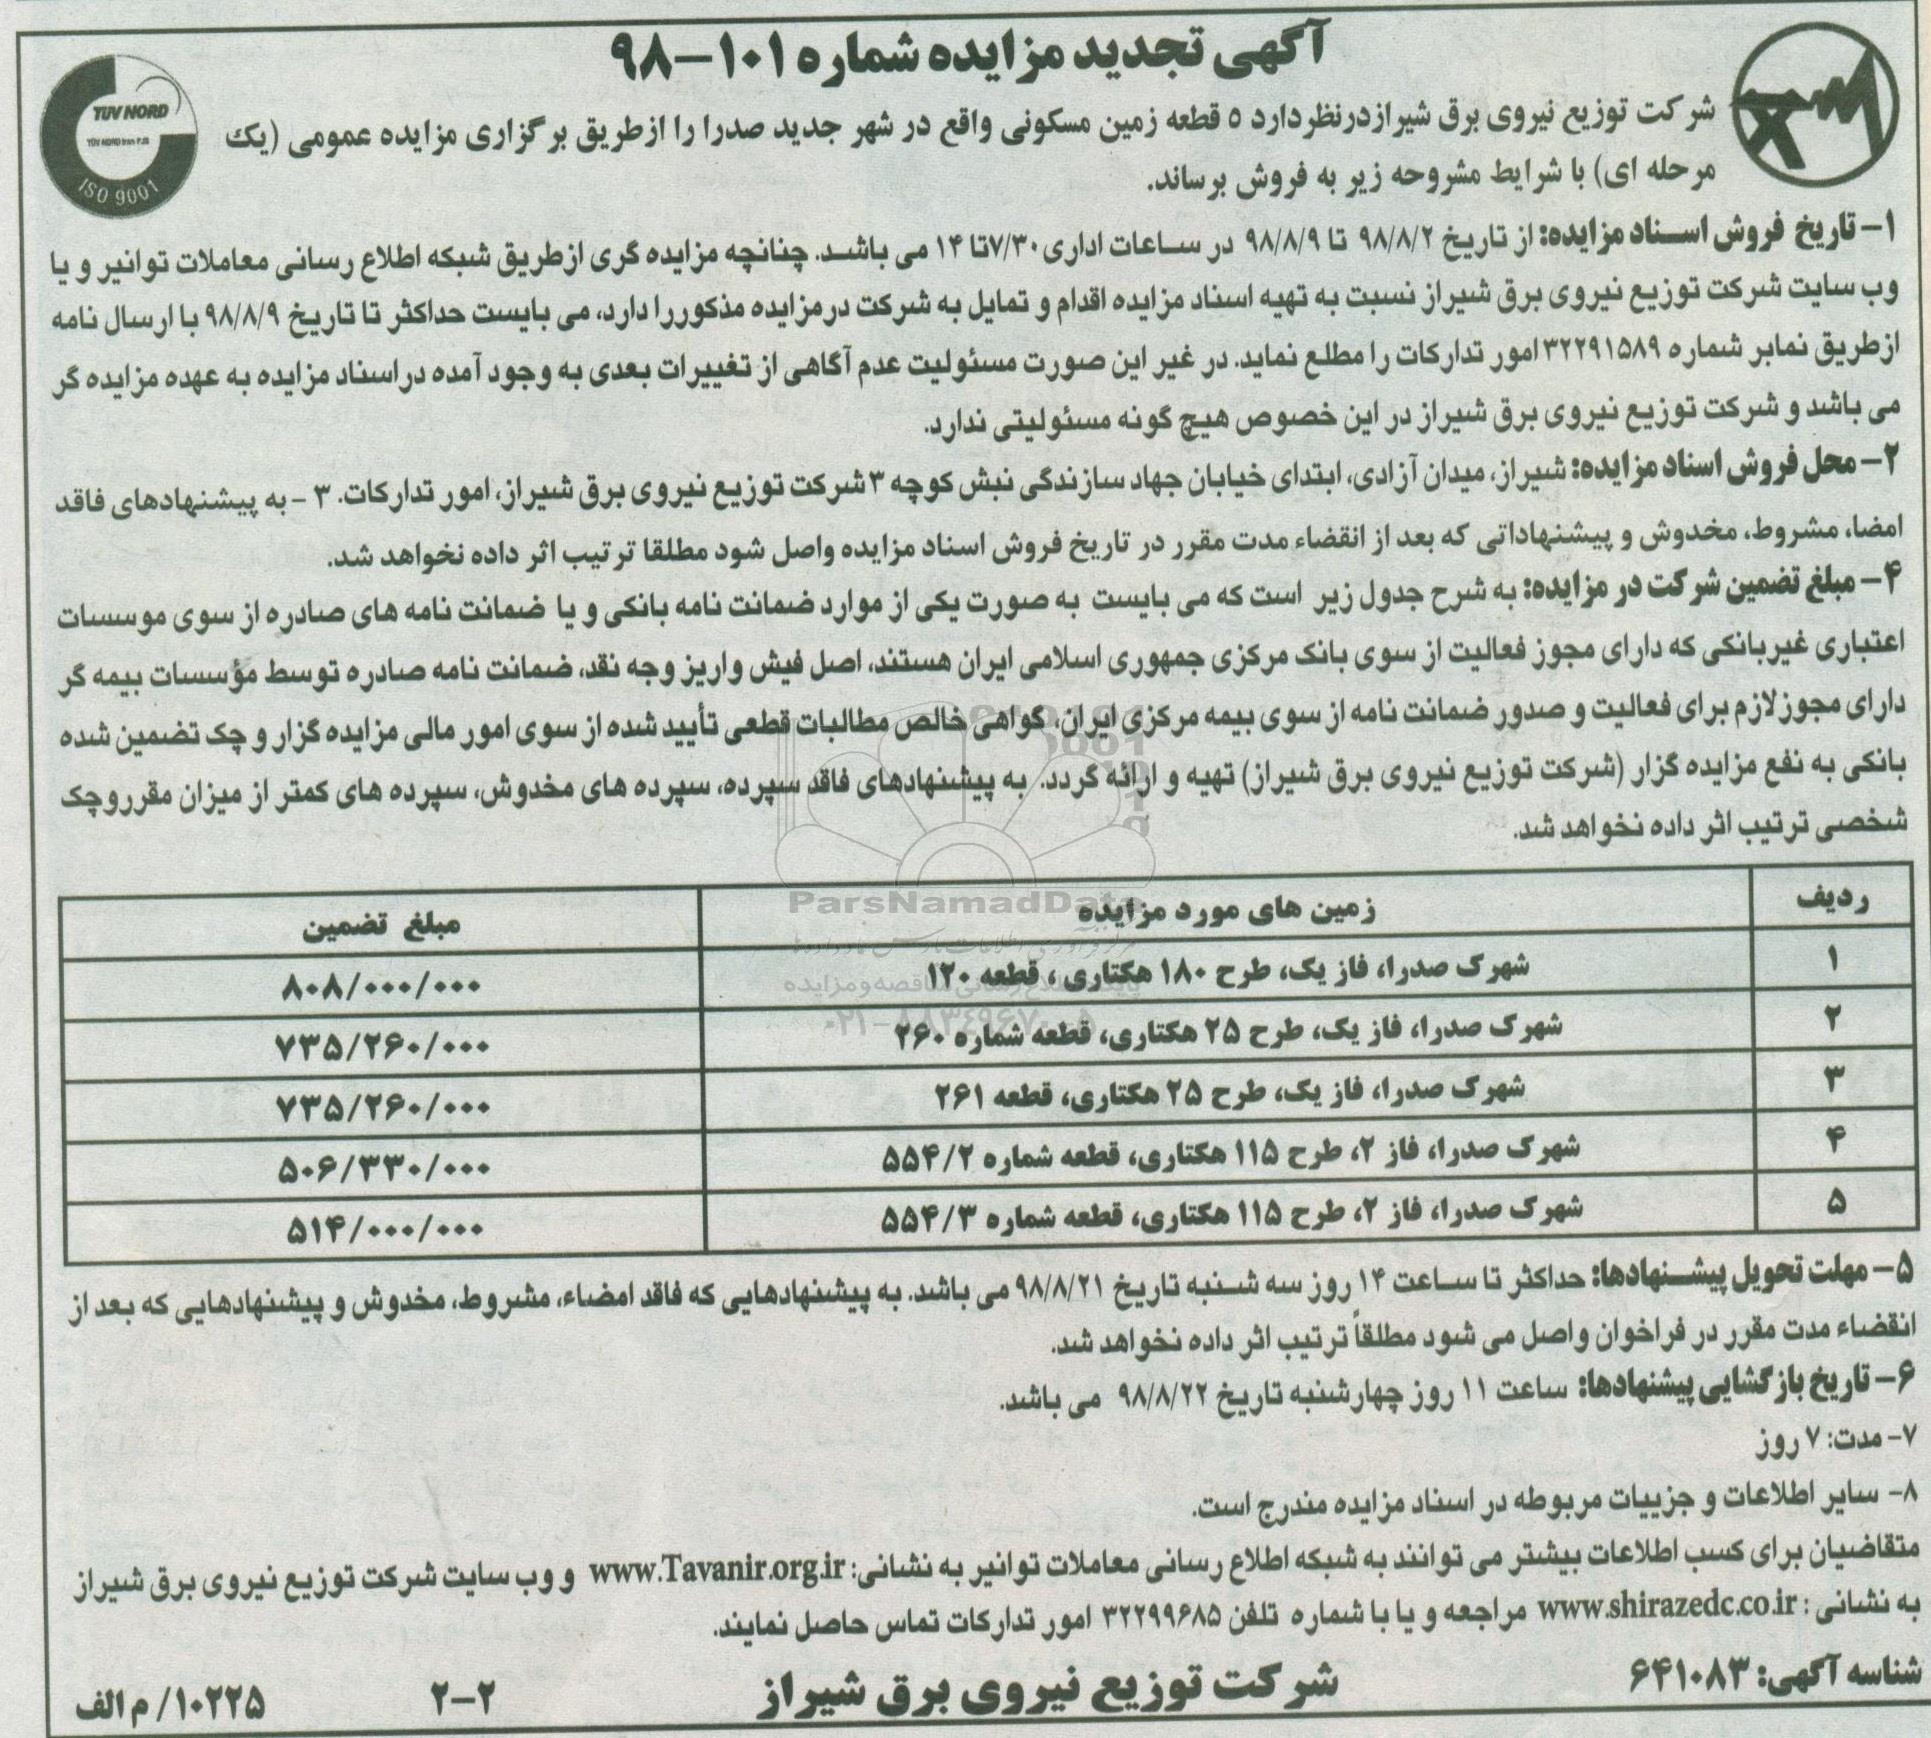 آگهی تجدید مزایده شماره ۱۰۱-۹۸
TUV NORD
TUV NORD Iran P.JS
ISO 9001
شرکت توزیع نیروی برق شیرازدرنظردارد ۵ قطعه زمین مسکونی واقع در شهر جدید صدرا را ازطریق برگزاری مزایده عمومی (یک
مرحله ای) با شرایط مشروحه زیر به فروش برساند.
۱- تاریخ فروش اسناد مزایده: از تاریخ ۹۸/۸/۲ تا ۹۸/۸/۹ در ساعات اداری ۷/۳۰تا ۱۴ می باشد. چنانچه مزایده گری ازطریق شبکه اطلاع رسانی معاملات توانیر و یا
وب سایت شرکت توزیع نیروی برق شیراز نسبت به تهیه اسناد مزایده اقدام و تمایل به شرکت درمزایده مذکوررا دارد، می بایست حداکثر تا تاریخ ۹۸/۸/۹ با ارسال نامه
ازطریق نمابر شماره ۳۲۲۹۱۵۸۹ امور تدارکات را مطلع نماید. در غیر این صورت مسئولیت عدم آگاهی از تغییرات بعدی به وجود آمده دراسناد مزایده به عهده مزایده گر
می باشد و شرکت توزیع نیروی برق شیراز در این خصوص هیچ گونه مسئولیتی ندارد.
۲- محل فروش اسناد مزایده: شیراز، میدان آزادی، ابتدای خیابان جهاد سازندگی نبش کوچه ۳ شرکت توزیع نیروی برق شیراز، امور تدارکات. ۳ - به پیشنهادهای فاقد
امضا، مشروط، مخدوش و پیشنهاداتی که بعد از انقضاء مدت مقرر در تاریخ فروش اسناد مزایده واصل شود مطلقا ترتیب اثر داده نخواهد شد.
۴- مبلغ تضمین شرکت در مزایده: به شرح جدول زیر است که می بایست به صورت یکی از موارد ضمانت نامه بانکی و یا ضمانت نامه های صادره از سوی موسسات
اعتباری غیربانکی که دارای مجوز فعالیت از سوی بانک مرکزی جمهوری اسلامی ایران هستند، اصل فیش واریز وجه نقد، ضمانت نامه صادره توسط مؤسسات بیمه گر
دارای مجوزلازم برای فعالیت و صدور ضمانت نامه از سوی بیمه مرکزی ایران، گواهی خالص مطالبات قطعی تأیید شده از سوی امور مالی مزایده گزار و چک تضمین شده
بانکی به نفع مزایده گزار (شرکت توزیع نیروی برق شیراز) تهیه و ارائه گردد. به پیشنهادهای فاقد سپرده، سپرده های مخدوش، سپرده های کمتر از میزان مقرروچک
شخصی ترتیب اثر داده نخواهد شد.
ParsNamadData
۰۲۱-۸۸۳۴۹۶۷۰-۵
ردیف زمین های مورد مزایده مبلغ تضمین
۱ شهرک صدرا، فاز یک، طرح ۱۸۰ هکتاری، قطعه ۱۲۰ ۸۰۸/۰۰۰/۰۰۰
۲ شهرک صدرا، فاز یک، طرح ۲۵ هکتاری، قطعه شماره ۲۶۰ ۷۳۵/۲۶۰/۰۰۰
۳ شهرک صدرا، فاز یک، طرح ۲۵ هکتاری، قطعه ۲۶۱ ۷۳۵/۲۶۰/۰۰۰
۴ شهرک صدرا، فاز ۲، طرح ۱۱۵ هکتاری، قطعه شماره ۵۵۴/۲ ۵۰۶/۳۳۰/۰۰۰
۵ شهرک صدرا، فاز ۲، طرح ۱۱۵ هکتاری، قطعه شماره ۵۵۴/۳ ۵۱۴/۰۰۰/۰۰۰
۵- مهلت تحویل پیشنهادها: حداکثر تا ساعت ۱۴ روز سه شنبه تاریخ ۹۸/۸/۲۱ می باشد. به پیشنهادهایی که فاقد امضاء، مشروط، مخدوش و پیشنهادهایی که بعد از
انقضاء مدت مقرر در فراخوان واصل می شود مطلقاً ترتیب اثر داده نخواهد شد.
۶- تاریخ بازگشایی پیشنهادها: ساعت ۱۱ روز چهارشنبه تاریخ ۹۸/۸/۲۲ می باشد.
۷- مدت: ۷ روز
۸- سایر اطلاعات و جزییات مربوطه در اسناد مزایده مندرج است.
متقاضیان برای کسب اطلاعات بیشتر می توانند به شبکه اطلاع رسانی معاملات توانیر به نشانی: www.Tavanir.org.ir و وب سایت شرکت توزیع نیروی برق شیراز
به نشانی : www.shirazedc.co.ir مراجعه و یا با شماره تلفن ۳۲۲۹۹۶۸۵ امور تدارکات تماس حاصل نمایند.
شناسه آگهی: ۶۴۱۰۸۳ شرکت توزیع نیروی برق شیراز ۲-۲ ۱۰۲۲۵/م الف